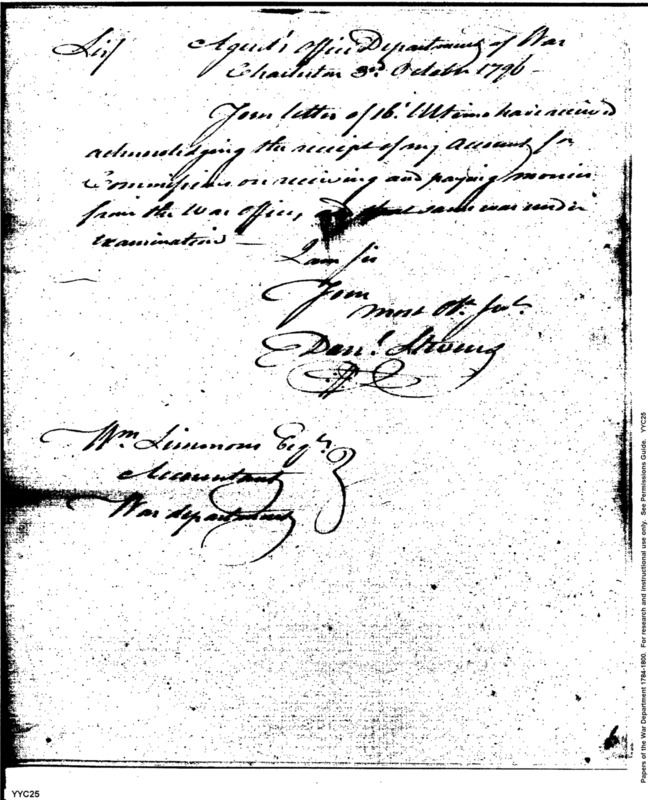 Sir/ Agent's Office Department of War
Charleston 3rd October 1796 -
Your letter of 16th Ultimo have received
acknowledging the receipt of my Account for
Commissions on receiving and paying monies
from the War Office, and that same was under
examination —
I am Sir
Your
most Obt Servt
Danl Stevens
Wm Simmons Esqr
Accountant
War department
Papers of the War Department 1784-1800. For research and instructional use only. See Permissions Guide. YYC25
YYC25